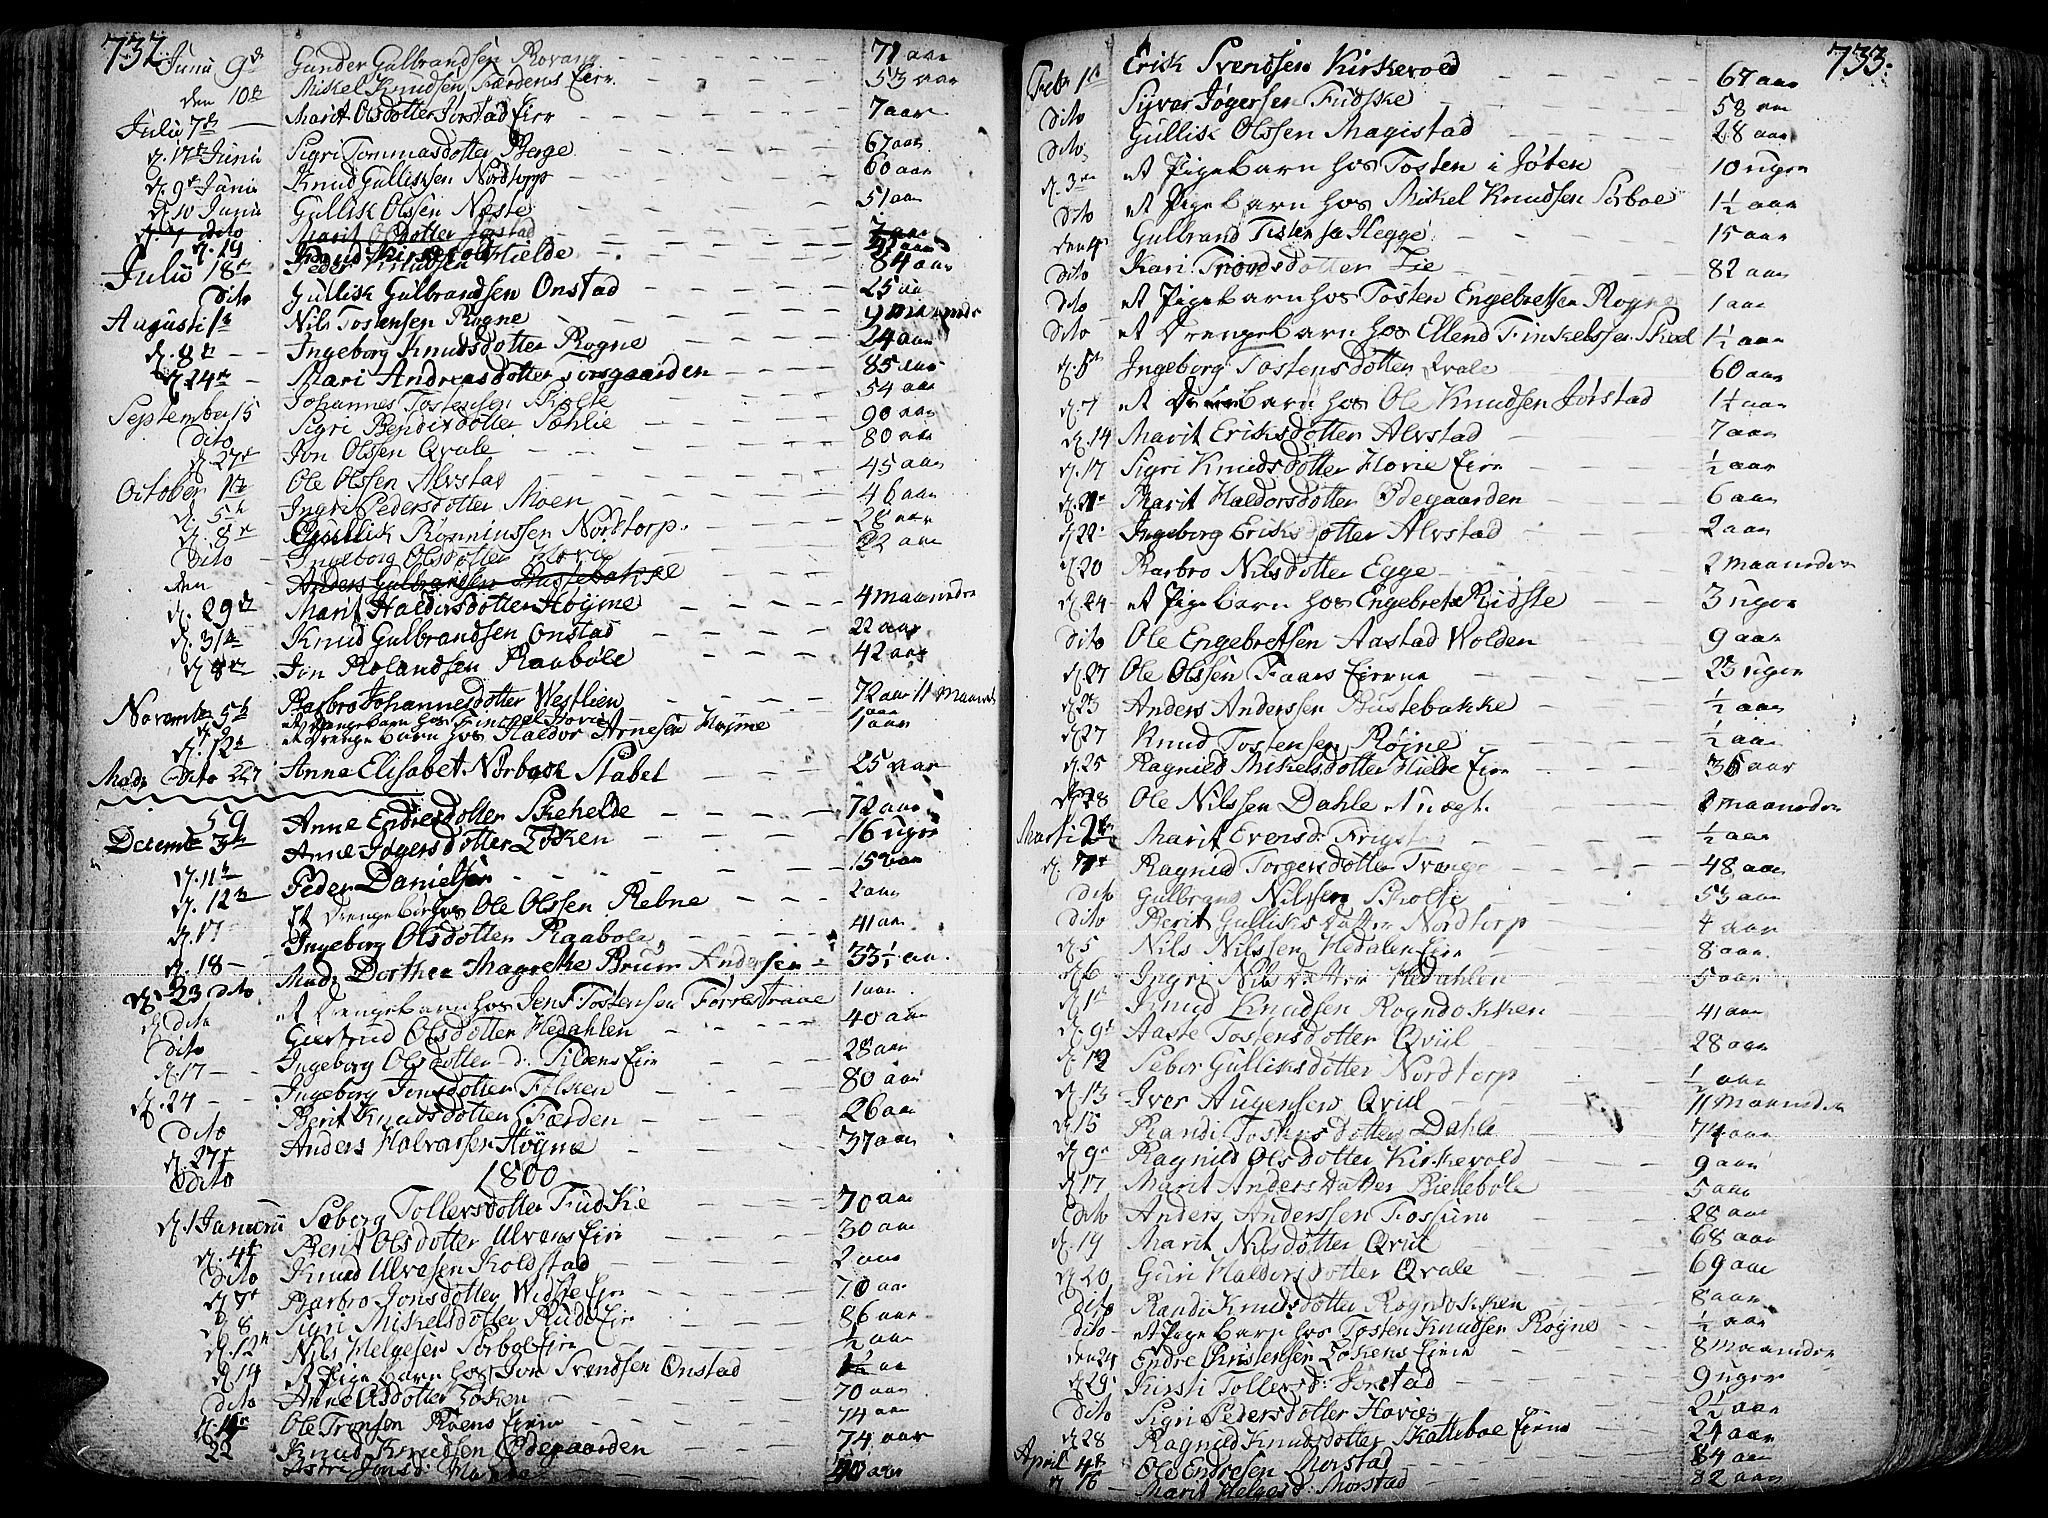 732
Junii 9de Gunder Gulbrandsen Rovang 71 aar
den 10de Mikel Knudsen Færdens Eier 53 aar
Julii 7de Marit Olsdotter Jorstad Eier 7 aar
d. 17de Junii Sigri Tommasdotter Berge 67 aar
d. 9de Junii Knud Gulliksen Nordtorp 60 aar
d. 10 Junii Gullik Olssen Næste 51 aar
dito Marit Olsdotter Jorstad 7 aar
d. 19
Julii 18de Peder Knudsen Hielde 84 aar
dito Gullik Gulbrandsen Onstad 25 aar
Augusti 1te Nils Tostensen Rogne 9 maaneder
d. 8de Ingeborg Knudsdotter Rogne 24 aar
d. 24de Mari Andreasdotter 85 aar
Johannes Tostensen Skolte 54 aar
September 15 Sigri Bendixdotter Sæhlie 90 aar
dito Jon Olssen Qvale 80 aar
d. 27de Ole Olssen Alvstad 45 aar
October 1te Ingri Pedersdotter Moen 46 aar
d. 5te Gullik Rønniussen Nordtorp 28 aar
d. 8de Ingeborg Olsdotter Hovie 22 aar
dito
den Anders Gulbrandsen Bustebakke
d. 29de Marit Haldorsdotter Høyme 4 maaneder
d. 31te Knud Gulbrandsen Onstad 22 aar
d. 8de Jon Rolandsen Raabøle 42 aar
Novemb: 5te Barbro Johannesdotter Westlien 72 aar 11 maaned
et Drengebarn hos Hovie 1 aar
d. 12te et Drengebarn hos Haldor Arnesen Høyme 1 aar
Mad: dito 22 Anne Elisabet Nørbeck Stabel 25 aar
59
Anne Endresdotter Skehelde 72 aar
Decemb: 3te Anne Jøgersdotter Løken 16 uger
d. 11te Peder Danielsen 15 aar
d. 12te Et Drengebarn hos Ole Olssen Rebne 2 aar
d. 17 Ingeborg Olsdotter Raabøle 41 aar
d. 18 Mad: Dorthea Magrethe Brun Andersen 33½ aar
d. 23 dito et Drengebarn hos Jens Tostensen Førrestrane 1 aar
d. dito Giertrud Olsdotter Hedahlen 40 aar
dito Ingeborg Olsdotter d: Tildens Eier 28 aar
d. 17 Ingeborg Jonsdotter Folken 80 aar
d. 24 Berit Knudsdotter Færden 26 aar
dito Anders Halvorsen Høyne 37 aar
d. 27de
dito 1800
d. 1 Januarii Seborg Tollersdotter Fudskie 70 aar
d. 4de Berit Olsdotter Ulvens Eier 30 aar
dito Knud Ulvesen Koldstad 2 aar
d. 7de Barbro Jonsdotter Widste Eier 70 aar
d. 8 Sigri Mikelsdotter Rude Eier 86 aar
d. 12te Nils Helgesen Sørboe Eier ½ aar
d. 14 et Pigebarn hos Jon Svendsen Onstad 1½ aar
dito Anne Olsdotter Løken 70 aar
Ole Tronsen Roens Eier 74 aar
22 Knud Knudsen Ødegaarden 74 aar
Astri Jonsd:

733.
Febr 1te Erik Svendsen Kirkevold 67 aar
dito Syver Jøgersen Fudske 58 aar
dito Gullik Olssen Magistad 28 aar
d. 3de et Pigebarn hos Tosten i Jøten 10 uger
dito et Pigebarn hos Mikel Knudsen Sørboe 1½ aar
den 4 Gulbrand Tostensen Hegge 15 aar
dito Kari Trondsdotter Lie 82 aar
dito et Pigebarn hos Tosten Engebretsen Rogne 1 aar
dito et Drengebarn hos Ellend Finkelssen Skiel 1½ aar
d. 5te Ingeborg Tostensdotter Qvale 60 aar
d. 7 et Drengebarn hos Ole Knudsen Jorstad 1¼ aar
d. 14 Marit Eriksdotter Alvstad 7 aar
d. 17 Sigri Knudsdotter Hovie Eier ½ aar
d. 21de Marit Haldorsdotter Ødegaarden 6 aar
d. 22 Ingeborg Eriksdotter Alvstad 2 aar
d. 20 Barbro Nilsdotter Egge 2 maaneder
d. 24 et Pigebarn hos Engebret Ridste 3 uger
dito Ole Engebretsen Aastad Wolden 9 aar
d. 27 Ole Olssen Faars Eierne 23 uger
d. 23 Anders Anderssen Bustebakke ½ aar
d. 27 Knud Tostensen Røine ½ aar
d. 25 Ragnild Mikelsdotter Hielde Eier 36 aar
d. 28 Ole Nilssen Dahle maaneder
Marti 2de Marit Evensd: ½ aar
d. 7de Ragnild Torgersdotter Trange 48 aar
dito Gulbrand Nilssen Skolte 53 aar
dito Berit Gulliksdatter Nordtorp 4 aar
d. 5 Nils Nilssen Hedalen Eier 8 aar
d. 6 Ingri Nilsdatter Hedahlen 5 aar
d. 1te Knud Knudsen Rogndokken 41 aar
d. 9de Aaste Tostensdotter Qviil 28 aar
d. 12 Sebor Gulliksdotter Nordtorp ½ aar
d. 13 Iver Augensen Qviil 11 maaneder
d. 15 Randi Tostensdotter Dahle 74 aar
d. 9de Ragnild Olsdotter Kirkevold 9 aar
d. 17 Marit Andersdatter Biellebøle 5 aar
dito Anders Anderssen Fossum 28 aar
d. 19 Marit Nilsdotter Qviil 68 aar
d. 20 Guri Haldorsdotter Qvale 69 aar
dito Randi Knudsdotter Rogndokken 8 aar
dito et Pigebarn hos Tosten Knudsen Røgne ½ aar
den 24 Endre Christensen Løkens Eier 8 maaneder
d. 29 Kirsti Tollersd: Jorstad 9 uger
dito Sigri Pedersdotter Hovie 2½ aar
d. 28 Ragnild Knudsdotter Skatteboe Eierne 24 aar
April 4de Ole Endresen Morstad 84 aar
d. 16 Marit Helgesd: Morstad 82 aar